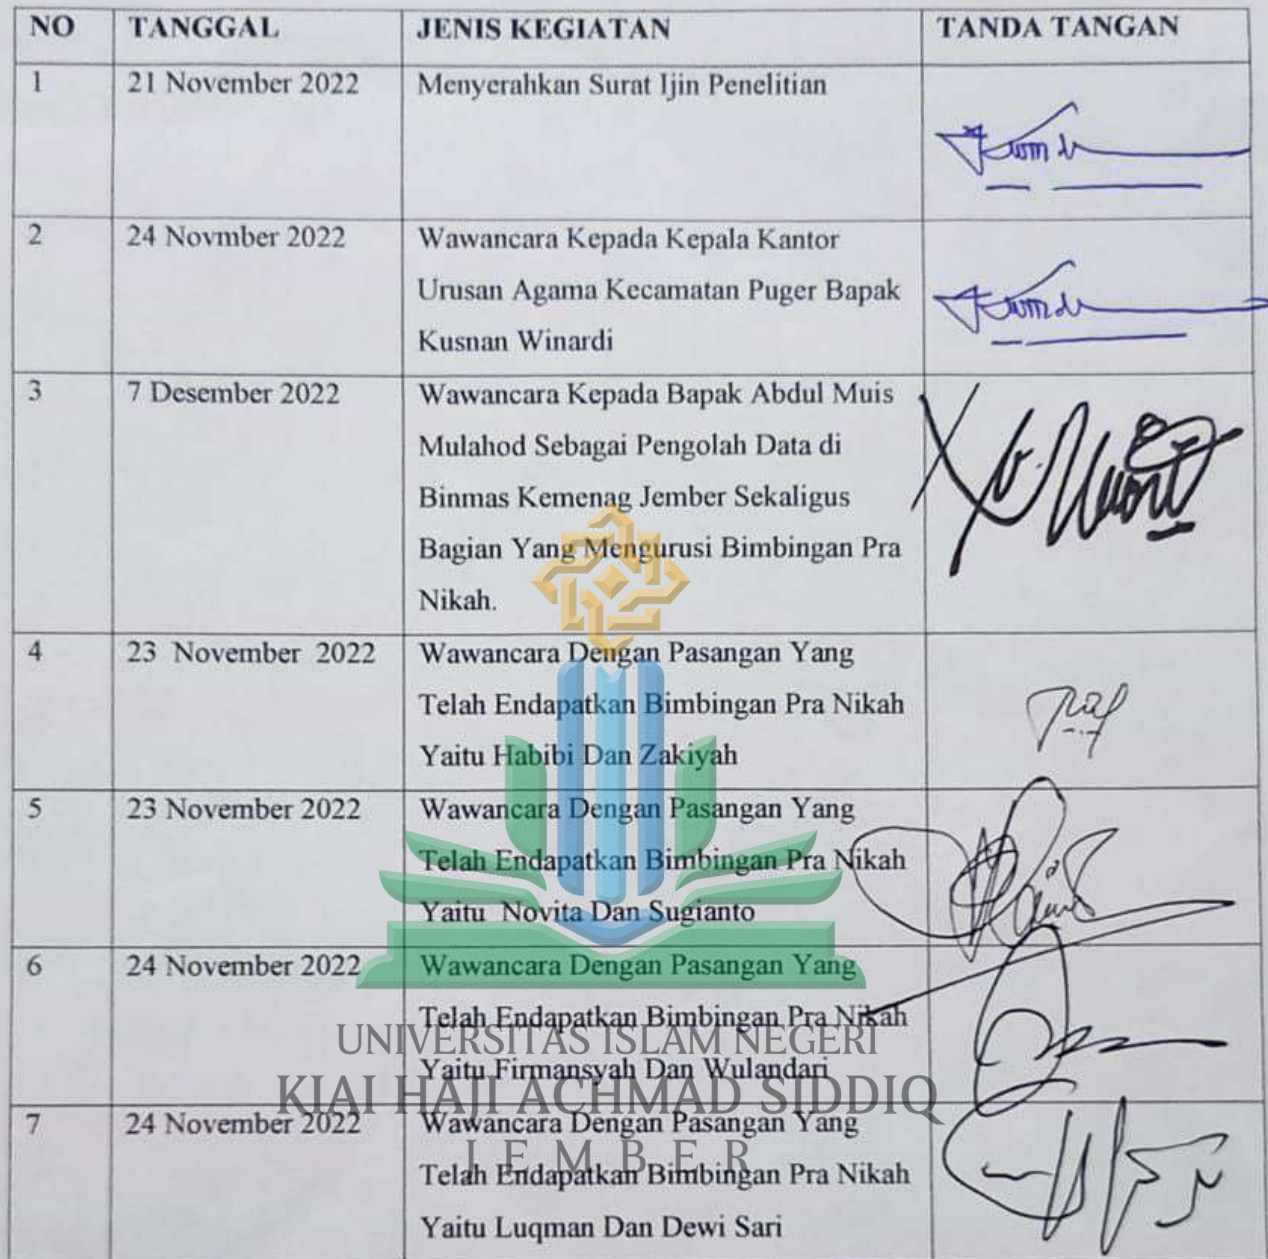 NO TANGGAL JENIS KEGIATAN TANDA TANGAN
1 21 November 2022 Menyerahkan Surat Ijin Penelitian
2 24 Novmber 2022 Wawancara Kepada Kepala Kantor
Urusan Agama Kecamatan Puger Bapak
Kusnan Winardi
3 7 Desember 2022 Wawancara Kepada Bapak Abdul Muis
Mulahod Sebagai Pengolah Data di
Binmas Kemenag Jember Sekaligus
Bagian Yang Mengurusi Bimbingan Pra
Nikah.
4 23 November 2022 Wawancara Dengan Pasangan Yang
Telah Endapatkan Bimbingan Pra Nikah
Yaitu Habibi Dan Zakiyah
5 23 November 2022 Wawancara Dengan Pasangan Yang
Telah Endapatkan Bimbingan Pra Nikah
Yaitu Novita Dan Sugianto
6 24 November 2022 Wawancara Dengan Pasangan Yang
Telah Endapatkan Bimbingan Pra Nikah
UNIVERSITAS ISLAM NEGERI
Yaitu Firmansyah Dan Wulandari
KIAI HAJI ACHMAD SIDDIQ
7 24 November 2022 Wawancara Dengan Pasangan Yang
JEMBER
Telah Endapatkan Bimbingan Pra Nikah
Yaitu Luqman Dan Dewi Sari